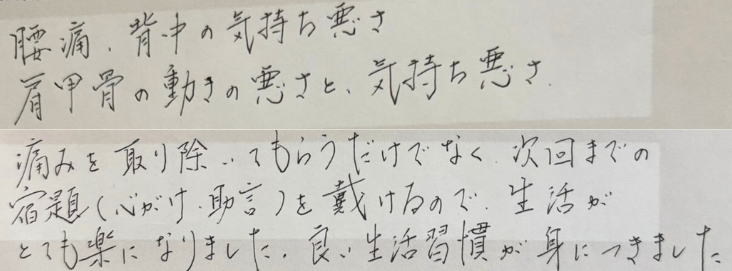 腰痛、背中の気持ち悪さ
肩甲骨の動きの悪さと、気持ち悪さ.
痛みを取り除いてもらうだけでなく、次回までの
宿題(心がけ、助言)を戴けるので、生活が
とても楽になりました。良い生活習慣が身につきました